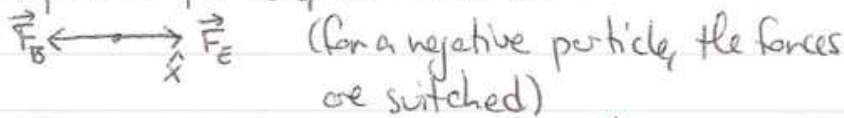 F⃗_B ←•→ F⃗_E (for a negative particle, the forces
x̂
are switched)